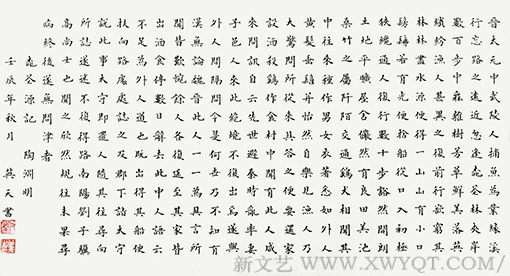 晉太元中武陵人捕魚為業緣溪
行忘路之遠近忽逢桃花林夾岸
數百步中無雜樹芳草鮮美落英
繽紛漁人甚異之復前行欲窮其
林林盡水源便得一山山有小口
髣髴若有光便捨船從口入初極
狹纔通人復行數十步豁然開朗
土地平曠屋舍儼然有良田美池
桑竹之屬阡陌交通雞犬相聞其
中往來種作男女衣著悉如外人
黃髮垂髫並怡然自樂見漁人乃
大驚問所從來具答之便要還家
設酒殺雞作食村中聞有此人咸
來問訊自云先世避秦時亂率妻
子邑人來此絕境不復出焉遂與
外人間隔問今是何世乃不知有
漢無論魏晉此人一一為具言所
聞皆歎惋餘人各復延至其家皆
出酒食停數日辭去此中人語云
不足為外人道也既出得其船便
扶向路處處誌之及郡下詣太守
說如此太守即遣人隨其往尋向
所誌遂迷不復得路南陽劉子驥
高尚士也聞之欣然規往未果尋
病終後遂無問津者
桃花源記 陶淵明
壬辰年秋月 吳天書
新文艺 www.XWYQT.COM